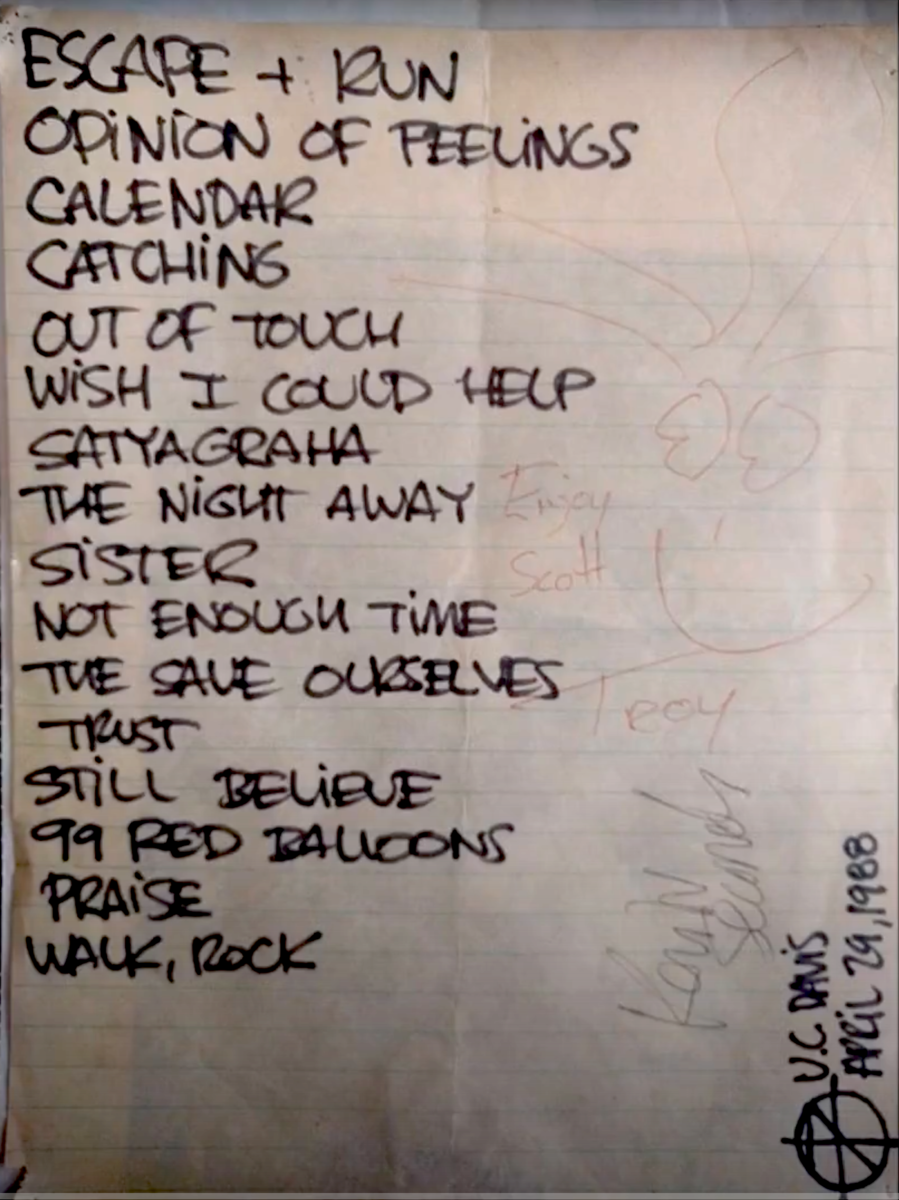 ESCAPE + RUN
OPiNiON OF FEELiNGS
CALENDAR
CATCHiNG
OUT OF TOUCH
WiSH I COULD HELP
SATYAGRAHA
THE NiGHT AWAY
SiSTER
NOT ENOUGH TiME
THE SAVE OURSELVES
TRUST
STiLL BELiEVE
99 RED BALLOONS
PRAiSE
WALK, ROCK
Enjoy
Scott
Troy
Kevin
Seconds
U.C. DAViS
APRiL 29, 1988